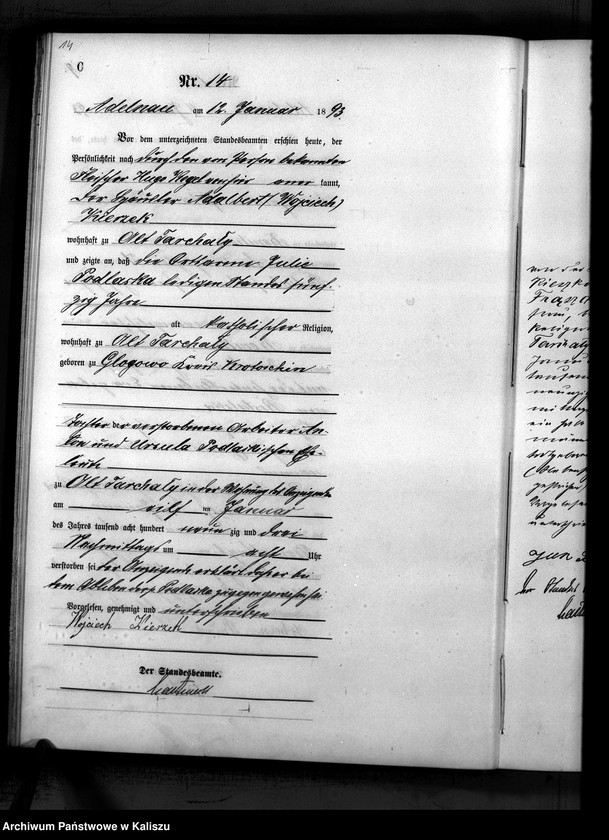 14
C
Nr. 14
Adelnau am 12. Januar 1893.
Vor dem unterzeichneten Standesbeamten erschien heute, der
Persönlichkeit nach durch den von Person bekannten
Fleischer Hugo kannt,
der Häusler Adalbert (Wojciech)
Kierzek
wohnhaft zu Alt Tarchaly
und zeigte an, daß die Ortsarme Julie
Podlaska ledigen Standes fünf-
zig Jahre
alt katholischer Religion,
wohnhaft zu Alt Tarchaly
geboren zu Glogowo Kreis Krotoschin
Tochter der verstorbenen Arbeiter An-
ton und Ursula Podlaskischen Ehe-
leute
zu Alt Tarchaly in der Wohnung des Anzeigenden
am eilf ten Januar
des Jahres tausend acht hundert neun zig und drei
Nachmittags um acht Uhr
verstorben sei der Anzeigende erklärt daß er bei
dem Ableben der p. Podlaska zugegen gewesen sei
Vorgelesen, genehmigt und unterschrieben
Wojciech Kierzek
Der Standesbeamte.
Archiwum Państwowe w Kaliszu